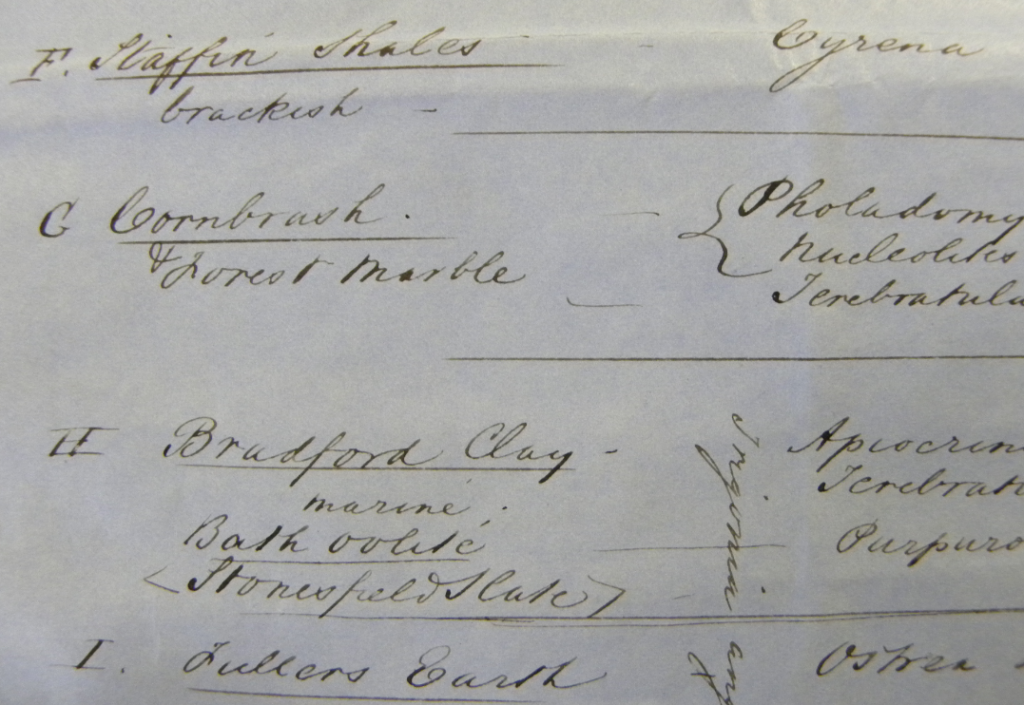 F. Staffin Shales - Cyrena
brackish -
G Cornbrash . - { Pholadomy
& Forest Marble Nucleolites
- Terebratula
H Bradford Clay - Apiocrin
marine . Terebratu
Bath oolite — Purpuro
< Stonesfield Slate >
I. Fullers Earth Ostrea -
Trigonia ang